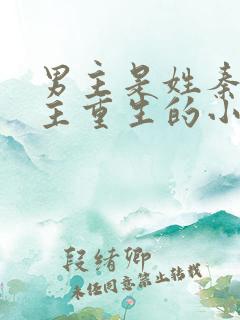 男主是姓秦
主重生的小
段绪卿
未经同意禁止转载